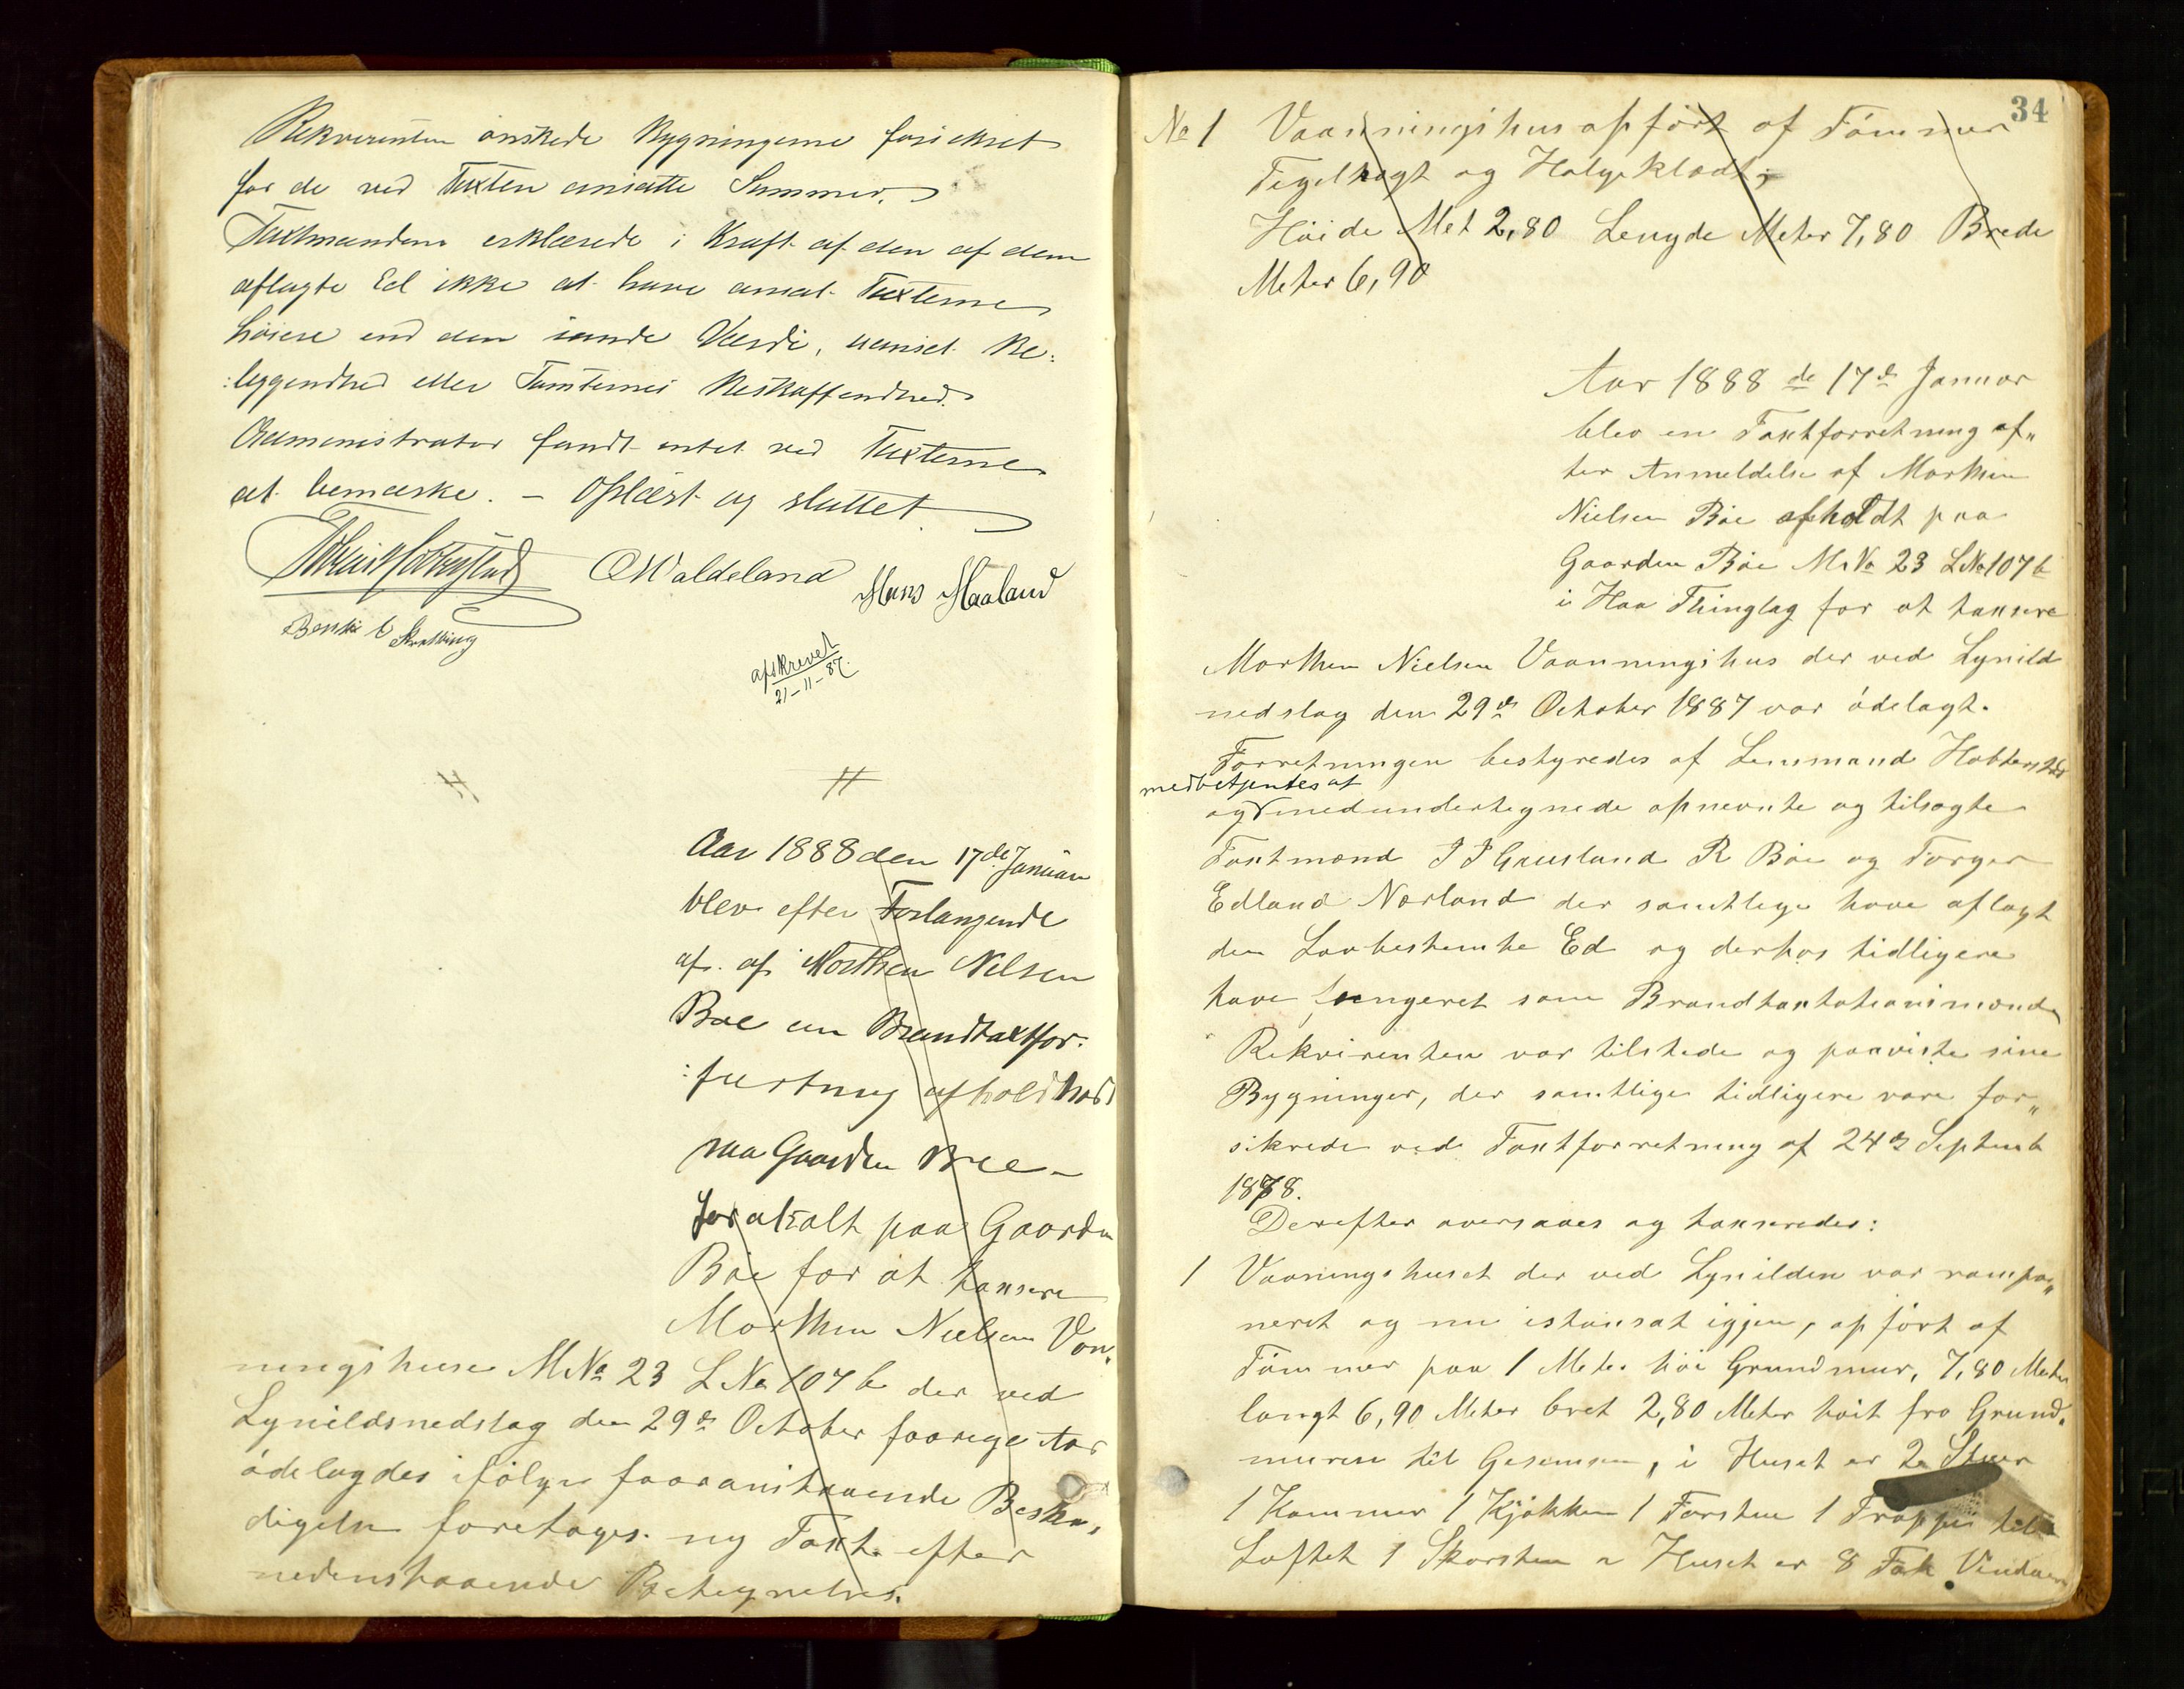 Rekvirenten ønskede Bygningerne forsickret
for de ved Taxten ansatte Summer.
Taxtmændene erklærede i Kraft af den af dem
aflagte Ed ikke at have ansat Taxterne
høiere end den sande Værdi, uanset Be-
:leggendhed eller Tomternes Beskaffendhed.
Administrator fandt intet ved Taxterne
at bemærke. – Oplæst og sluttet
OMaldeland Hans Haaland
Bertil E Skretting
afskrevet
21-11-87.
Aar 1888 den 17de Januar
blev efter Forlangende
af. af Morthen Nilsen
Boe en Brandtaxtfor-
afhold
paa Gaarden Bøe –
paa Gaarden
Bøe for at taxsere
Morthen Nielsen Von,
ningshuse MNo 23 LNo 107 b der ved
Lynildsnedslag den 29de October foorige Aar
ødelagdes ifølge fooranstaaende Beskr,
digelse foretages ny Taxt efter
nedenstaaende Betegnelses.
34
No 1 Vaaningshus opført af Tømmer
Tegeltagt og Halgeklædt;
Høide Met 2,80 Lengde Meter 7,80 Brede
Meter 6,90
Aar 1888 de 17de Januar
blev en Taxtforretning ef„
ter Anmeldelse af Morthen
Nielsen Bøe afholdt paa
Gaarden Bøe MNo 23 LNo 107 b
i Haa Thinglag for at taxsere
Morthen Nielsen Vaanningshus der ved Lynild
nedslag den 29de October 1887 var ødelagt.
Forretningen bestyredes af Lensmand
medbetjentes af
og medundertegnede opnevnte og tilsagte
Taxtmænd J J Grusland R Bøe og Torger
Edland Nærland der samtlige have aflagt
den Lovbestemte Ed og derhos tidligere
have fungeret som Brandtaxtationsmænd
Rekvirenten var tilstede og paaviste sine
Bygninger, der samtlige tidligere vare for„
sikrede ved Taxtforretning af 24de Septemb
1878.
Derefter oversaaes og taxseredes:
1 Vaaningshuset der ved Lynilden var rampo„
neret og nu istansat iggjen, opført af
Tømmer paa 1 Meter høi Grundmur, 7,80 Meter
langt 6,90 Meter bret 2,80 Meter høit fra Grund„
muren til Gesemsen, i Huset er 2 Stuer
1 Kammer 1 Kjøkken 1 Forstue 1 Trappe til
Loftet 1 Skorsten i Huset er 8 Fak Vinduer